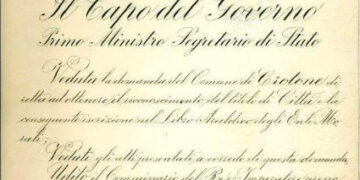 Il Capo del Governo
Primo Ministro Segretario di Stato
Veduta la domanda del Comune di Crotone di
retta ad ottenere il riconoscimento del titolo di Città e la
conseguente iscrizione nel Libro Araldico degli Enti Mo
rali;
Veduti gli atti presentati a corredo di questa domanda,
Udito il Commissario del Re